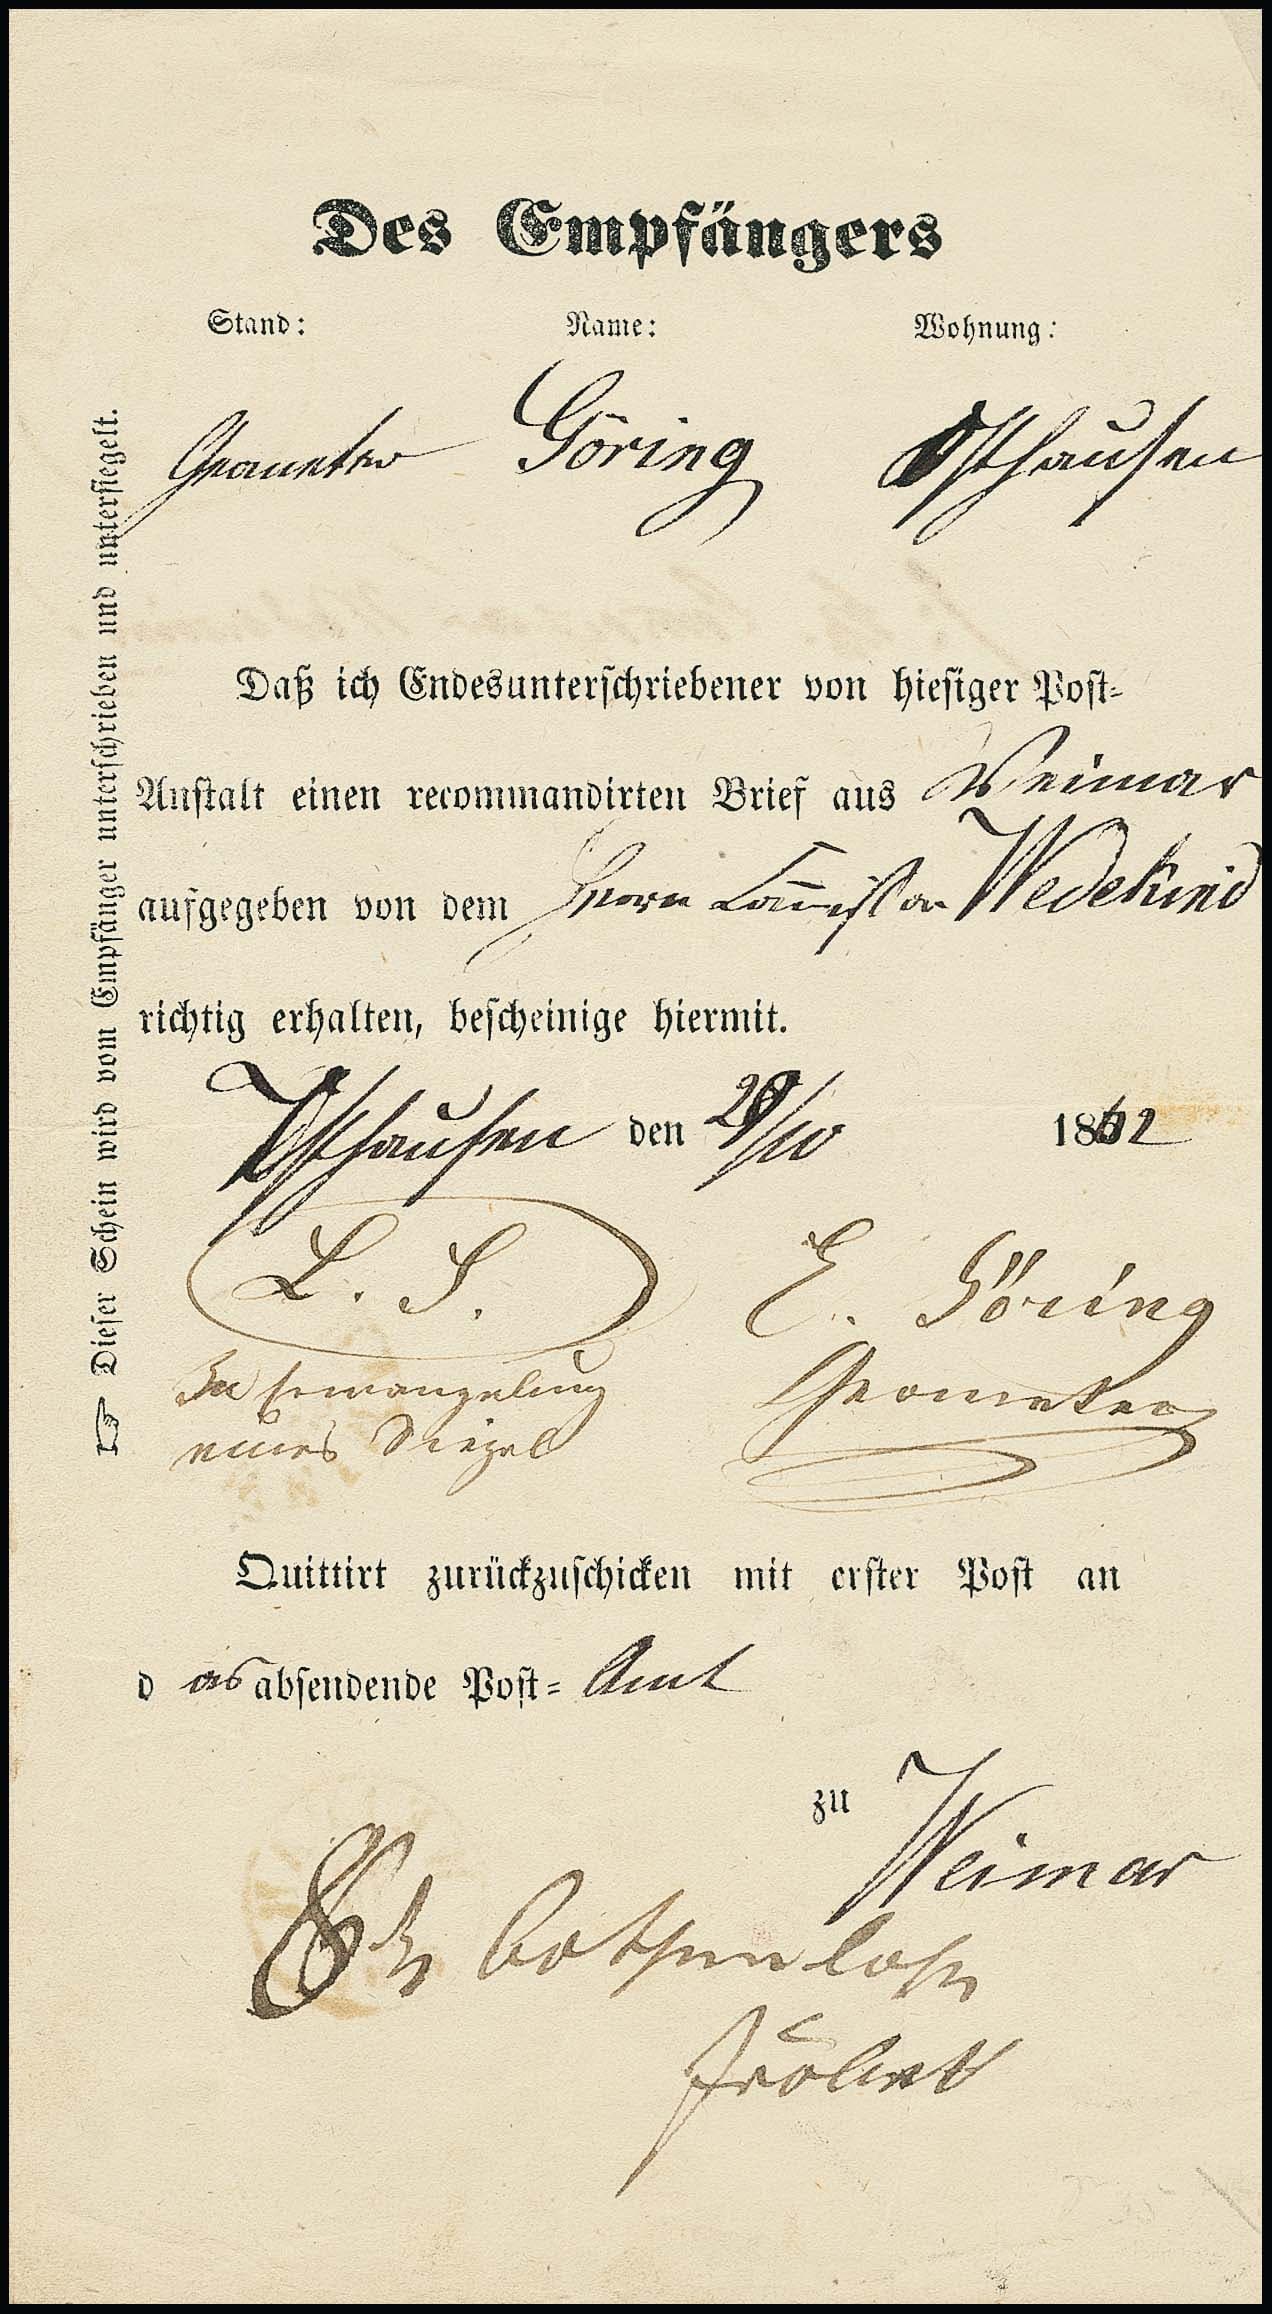 Des Empfängers
Stand: Name: Wohnung:
Geometer Göring Osthausen
Daß ich Endesunterschriebener von hiesiger Post-
Anstalt einen recommandirten Brief aus Weimar
aufgegeben von dem Herrn Wedekind
richtig erhalten, bescheinige hiermit.
Osthausen den /10 1862
L. S. E. Göring
In Ermangelung Geometer
eines Siegel
Quittirt zurückzuschicken mit erster Post an
d as absendende Post- Amt
zu Weimar
Dieser Schein wird vom Empfänger unterschrieben und untersiegelt.